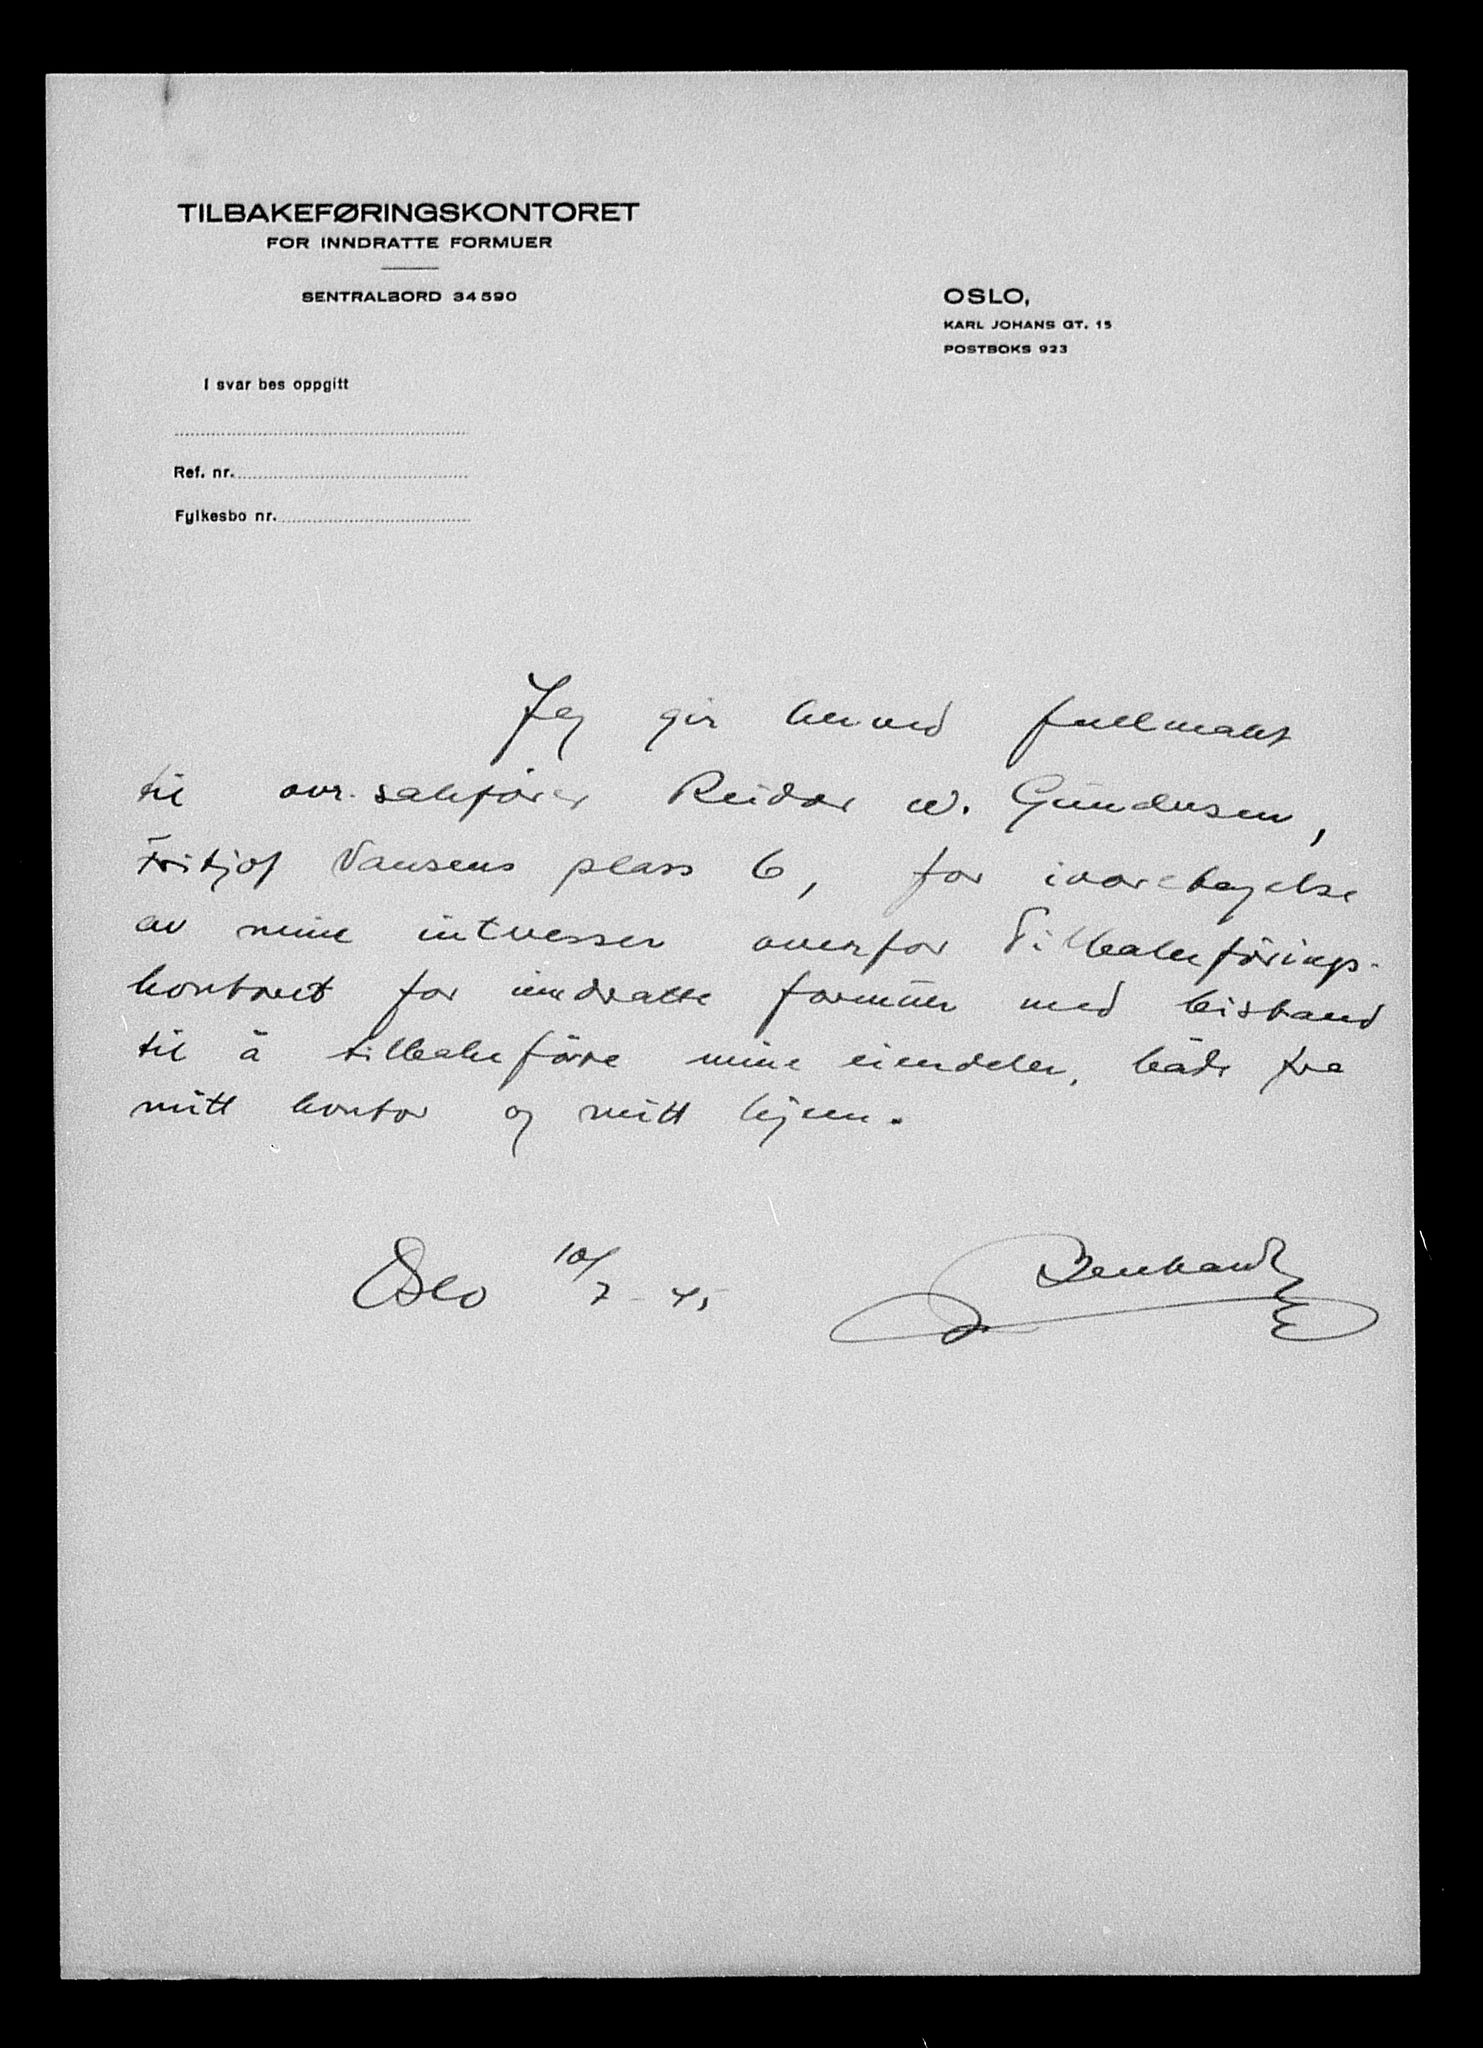 TILBAKEFØRINGSKONTORET
FOR INNDRATTE FORMUER
SENTRALBORD 34590
OSLO,
KARL JOHANS GT. 15
POSTBOKS 923
I svar bes oppgitt
Ref. nr.
Fylkesbo nr.
Jeg gir herved fullmakt
til ovr. sakfører Reidar W. Gundersen,
Fritjof Nansens plass 6, for ivaretagelse
av mine interesser overfor Tilbakeførings-
kontoret for inndratte formuer med bistand
til å tilbakeføre mine eiendeler, både fra
mitt kontor og mitt hjem.
Oslo 10/7-45